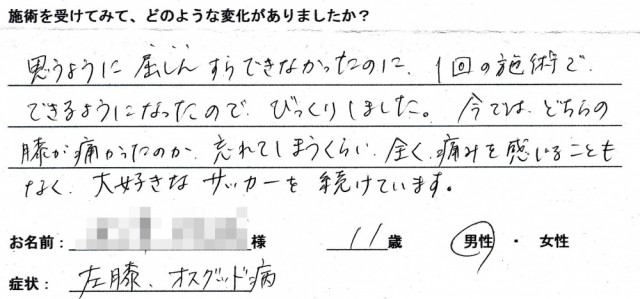 施術を受けてみて、どのような変化がありましたか？
思うように屈しんすらできなかったのに、1回の施術で、
できるようになったので、びっくりしました。今では、どちらの
膝が痛かったのか、忘れてしまうくらい、全く、痛みを感じることも
なく、大好きなサッカーを続けています。
お名前： 様 11歳 男性・女性
症状：左膝、オスグッド病